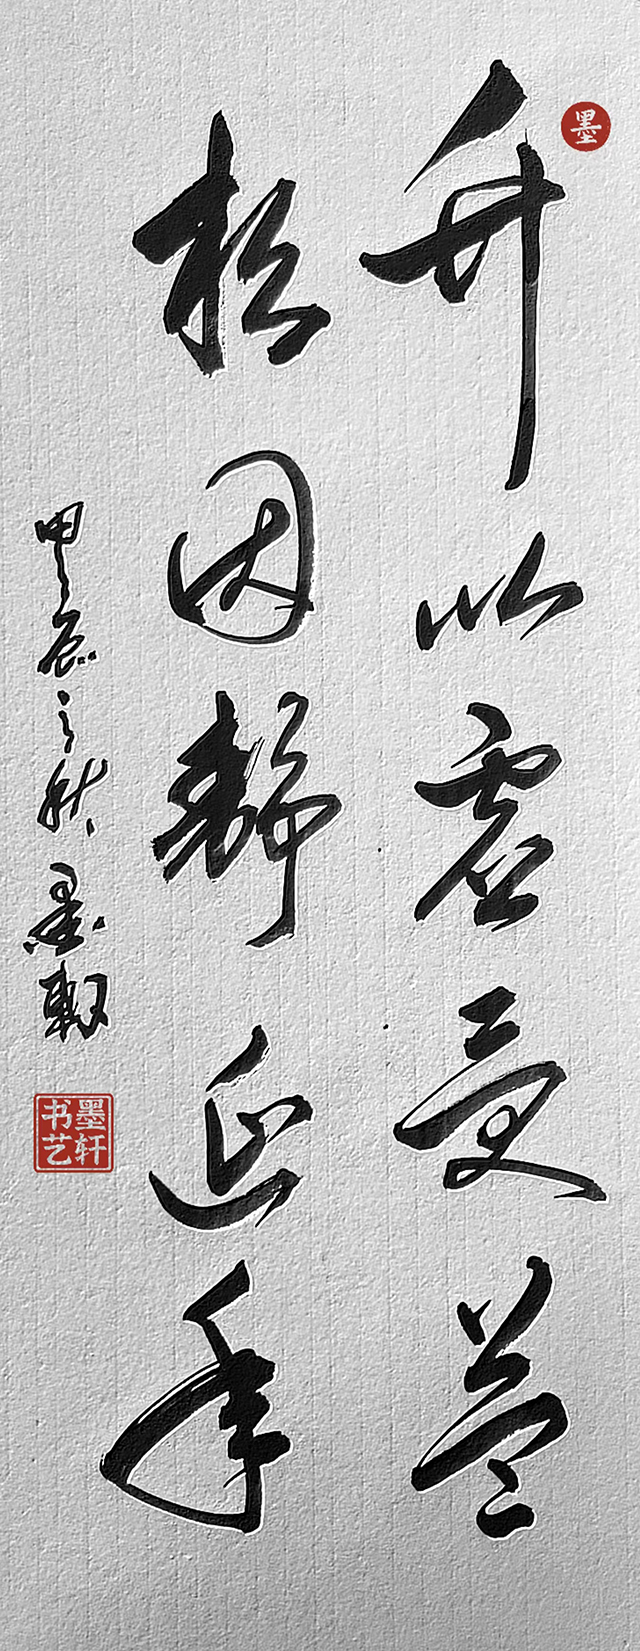 墨
竹以虚受益
松因静延年
甲辰之秋 墨轩
墨轩
书艺